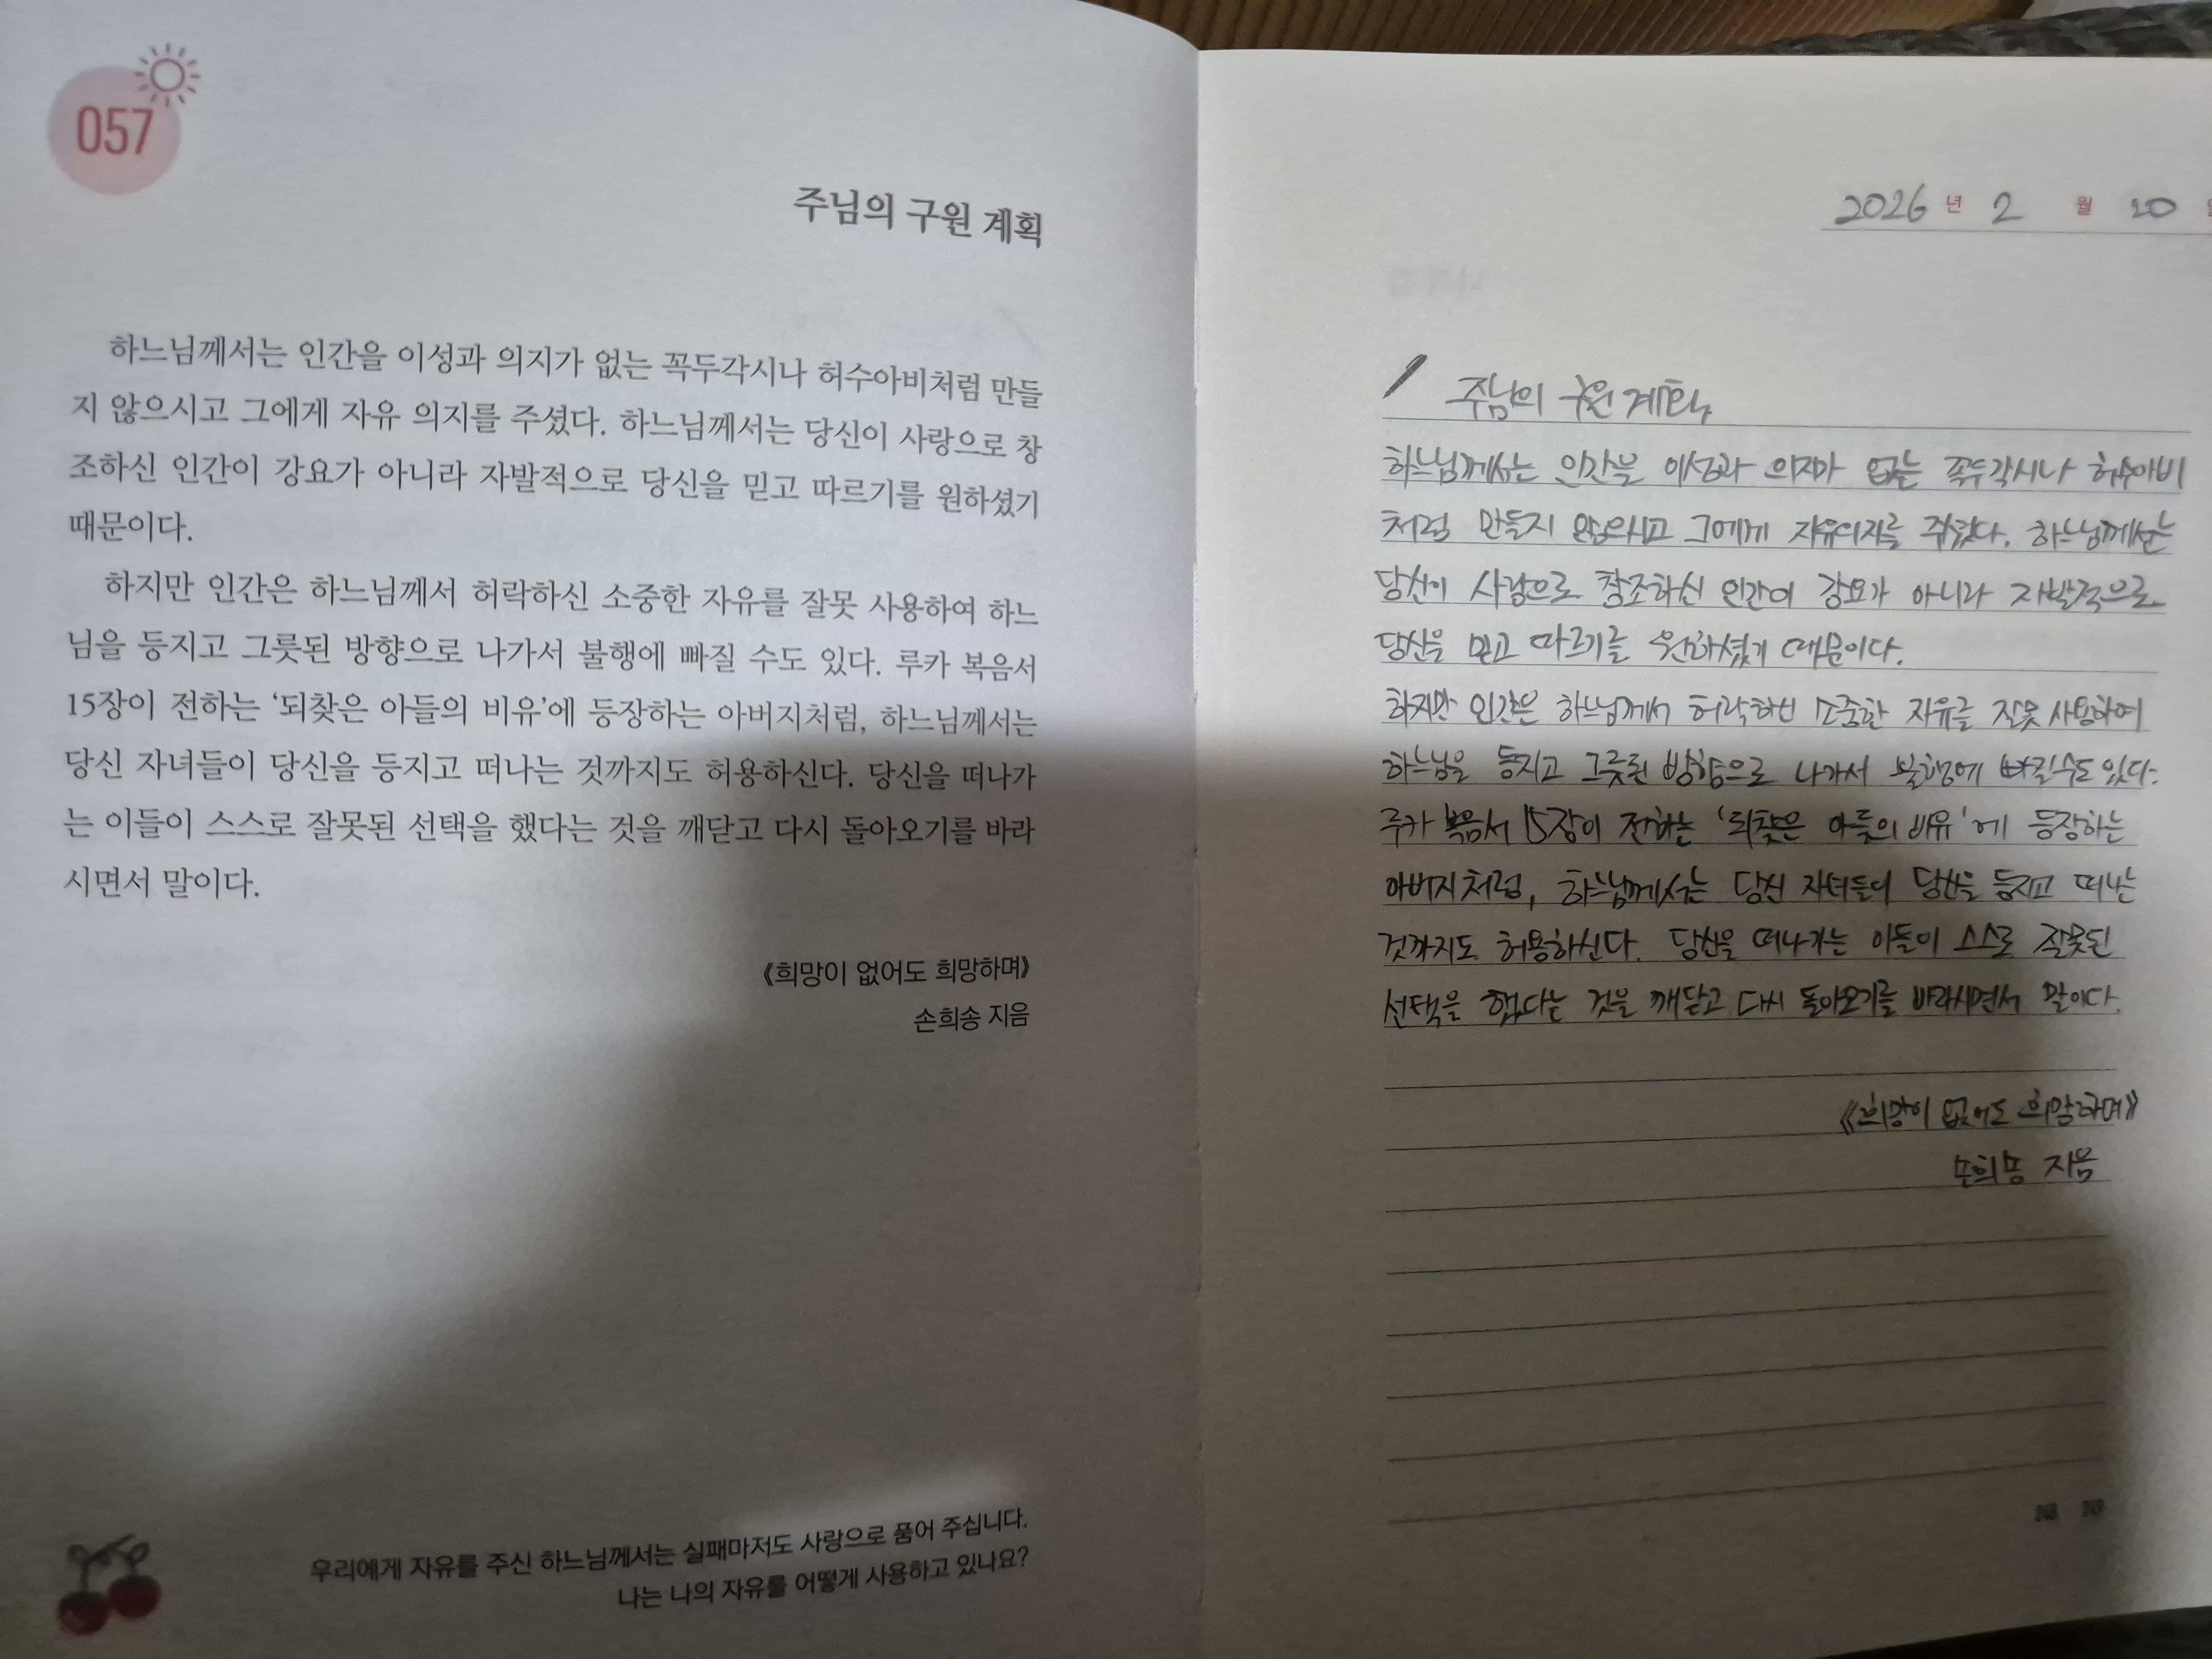 057
주님의 구원 계획
하느님께서는 인간을 이성과 의지가 없는 꼭두각시나 허수아비처럼 만들
지 않으시고 그에게 자유 의지를 주셨다. 하느님께서는 당신이 사랑으로 창
조하신 인간이 강요가 아니라 자발적으로 당신을 믿고 따르기를 원하셨기
때문이다.
하지만 인간은 하느님께서 허락하신 소중한 자유를 잘못 사용하여 하느
님을 등지고 그릇된 방향으로 나가서 불행에 빠질 수도 있다. 루카 복음서
15장이 전하는 ‘되찾은 아들의 비유’에 등장하는 아버지처럼, 하느님께서는
당신 자녀들이 당신을 등지고 떠나는 것까지도 허용하신다. 당신을 떠나가
는 이들이 스스로 잘못된 선택을 했다는 것을 깨닫고 다시 돌아오기를 바라
시면서 말이다.
《희망이 없어도 희망하며》
손희송 지음
우리에게 자유를 주신 하느님께서는 실패마저도 사랑으로 품어 주십니다.
나는 나의 자유를 어떻게 사용하고 있나요?
2026 년 2 월 20 일
주님의 구원 계획
하느님께서는 인간을 이성과 의지가 없는 꼭두각시나 허수아비
처럼 만들지 않으시고 그에게 자유의지를 주셨다. 하느님께서는
당신이 사랑으로 창조하신 인간이 강요가 아니라 자발적으로
당신을 믿고 따르기를 원하셨기 때문이다.
하지만 인간은 하느님께서 허락하신 소중한 자유를 잘못 사용하여
하느님을 등지고 그릇된 방향으로 나가서 불행에 빠질수도 있다.
루카 복음서 15장이 전하는 '되찾은 아들의 비유'에 등장하는
아버지처럼, 하느님께서는 당신 자녀들이 당신을 등지고 떠나는
것까지도 허용하신다. 당신을 떠나가는 이들이 스스로 잘못된
선택을 했다는 것을 깨닫고 다시 돌아오기를 바라시면서 말이다.
《희망이 없어도 희망하며》
손희송 지음